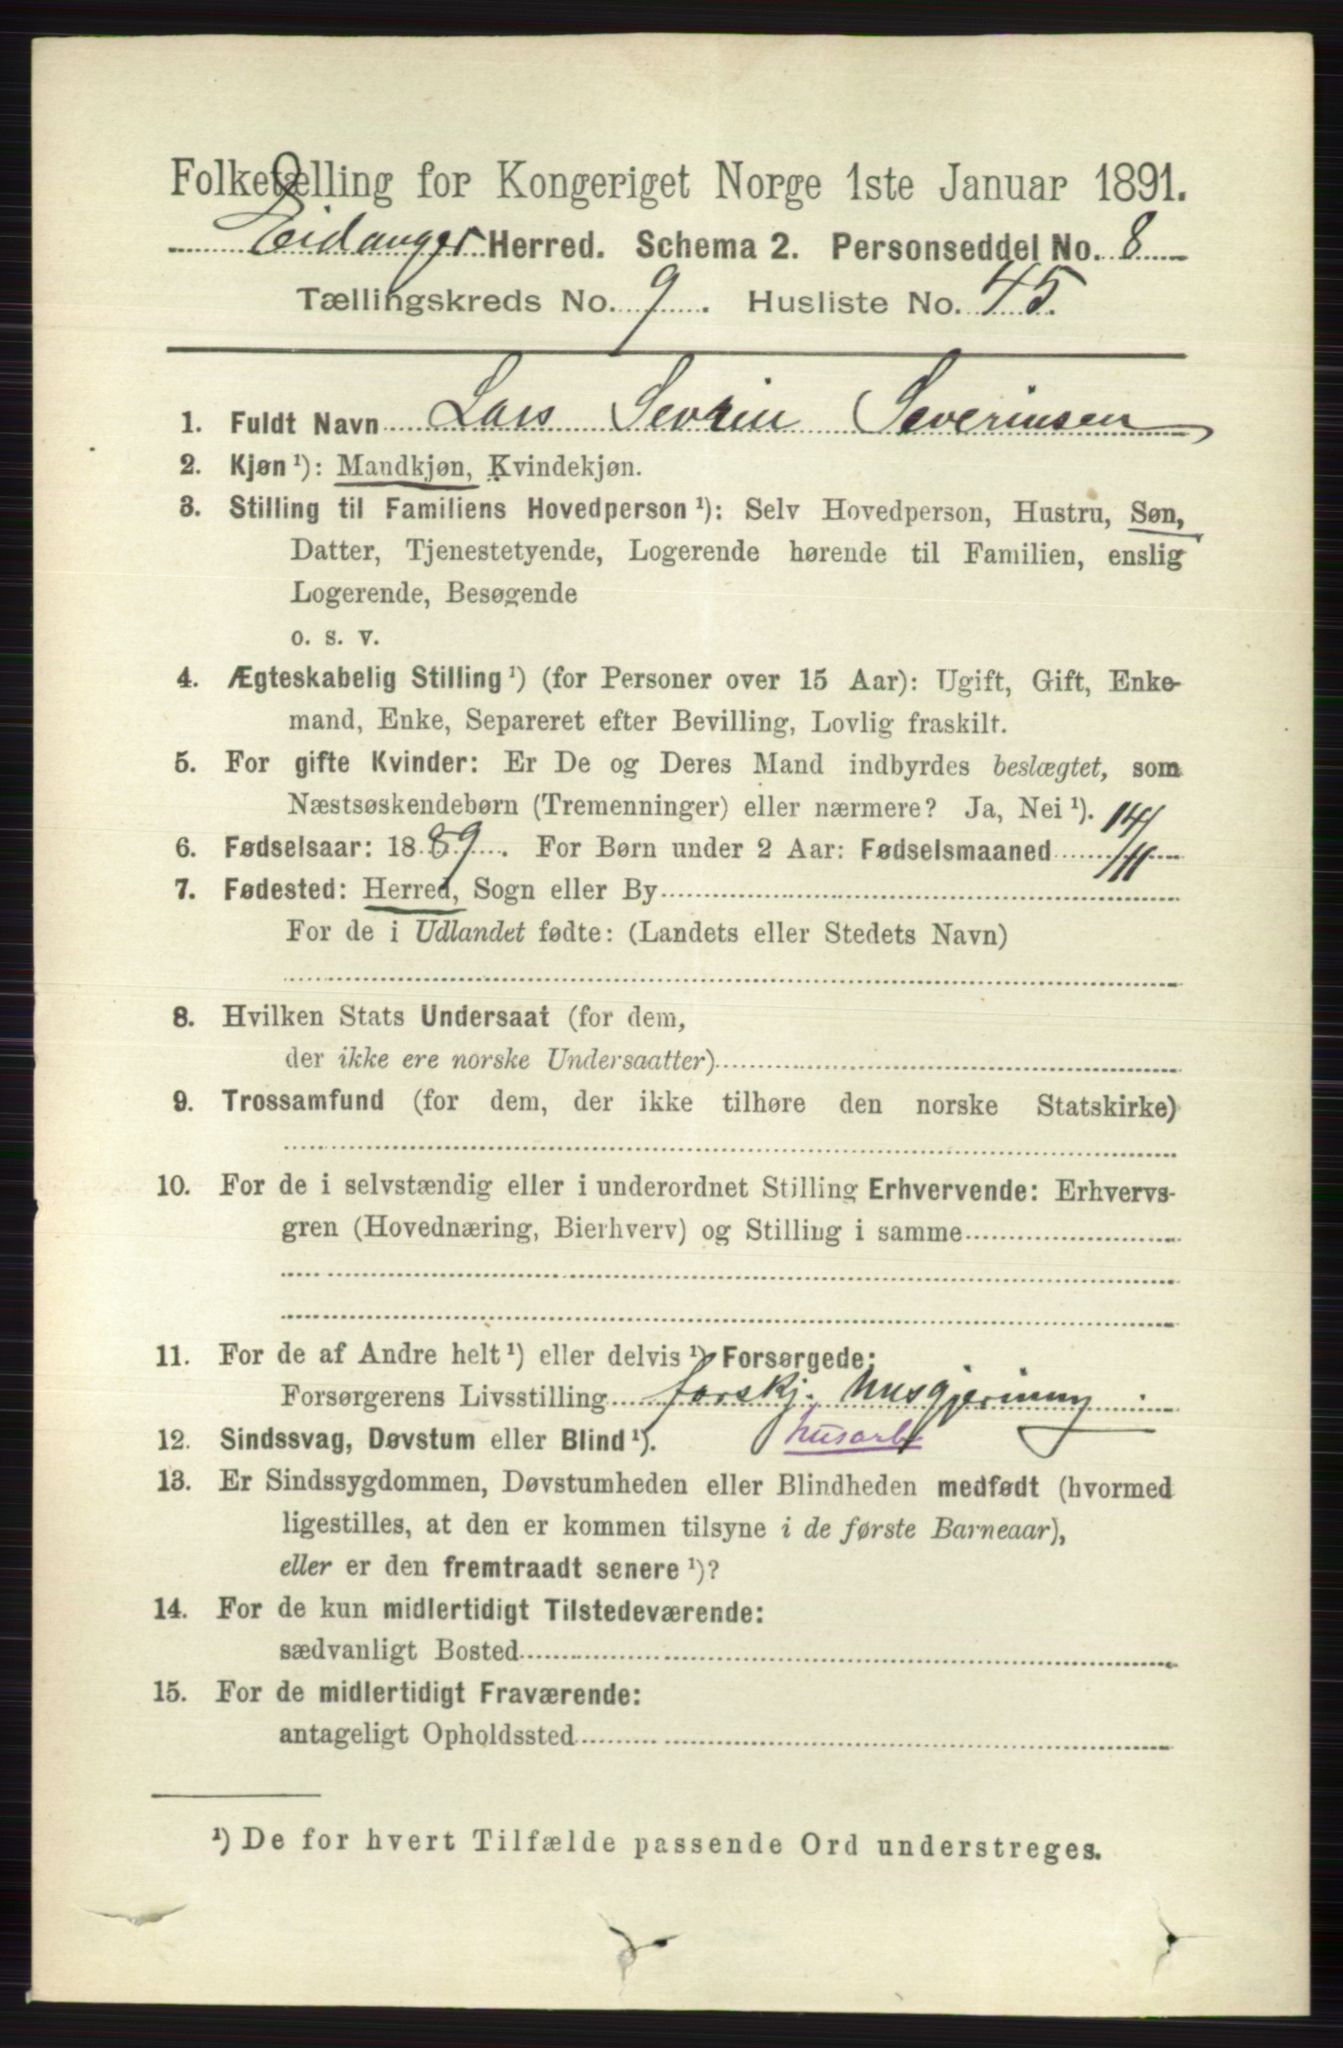 Folketælling for Kongeriget Norge 1ste Januar 1891.
Eidanger Herred. Schema 2. Personseddel No. 8
Tællingskreds No. 9. Husliste No. 45.
1. Fuldt Navn Lars Sevrin Severinsen
2. Kjøn ¹): Mandkjøn, Kvindekjøn.
3. Stilling til Familiens Hovedperson ¹): Selv Hovedperson, Hustru, Søn,
Datter, Tjenestetyende, Logerende hørende til Familien, enslig
Logerende, Besøgende
o. s. v.
4. Ægteskabelig Stilling ¹) (for Personer over 15 Aar): Ugift, Gift, Enke-
mand, Enke, Separeret efter Bevilling, Lovlig fraskilt.
5. For gifte Kvinder: Er De og Deres Mand indbyrdes beslægtet, som
Næstsøskendebørn (Tremenninger) eller nærmere? Ja, Nei ¹).
6. Fødselsaar: 1889. For Børn under 2 Aar: Fødselsmaaned 14/11
7. Fødested: Herred, Sogn eller By
For de i Udlandet fødte: (Landets eller Stedets Navn)
8. Hvilken Stats Undersaat (for dem,
der ikke ere norske Undersaatter)
9. Trossamfund (for dem, der ikke tilhøre den norske Statskirke)
10. For de i selvstændig eller i underordnet Stilling Erhvervende: Erhvervs-
gren (Hovednæring, Bierhverv) og Stilling i samme
11. For de af Andre helt ¹) eller delvis ¹) Forsørgede:
Forsørgerens Livsstilling forskj. husgjerning
12. Sindssvag, Døvstum eller Blind ¹). husarb
13. Er Sindssygdommen, Døvstumheden eller Blindheden medfødt (hvormed
ligestilles, at den er kommen tilsyne i de første Barneaar),
eller er den fremtraadt senere ¹)?
14. For de kun midlertidigt Tilstedeværende:
sædvanligt Bosted
15. For de midlertidigt Fraværende:
antageligt Opholdssted
¹) De for hvert Tilfælde passende Ord understreges.